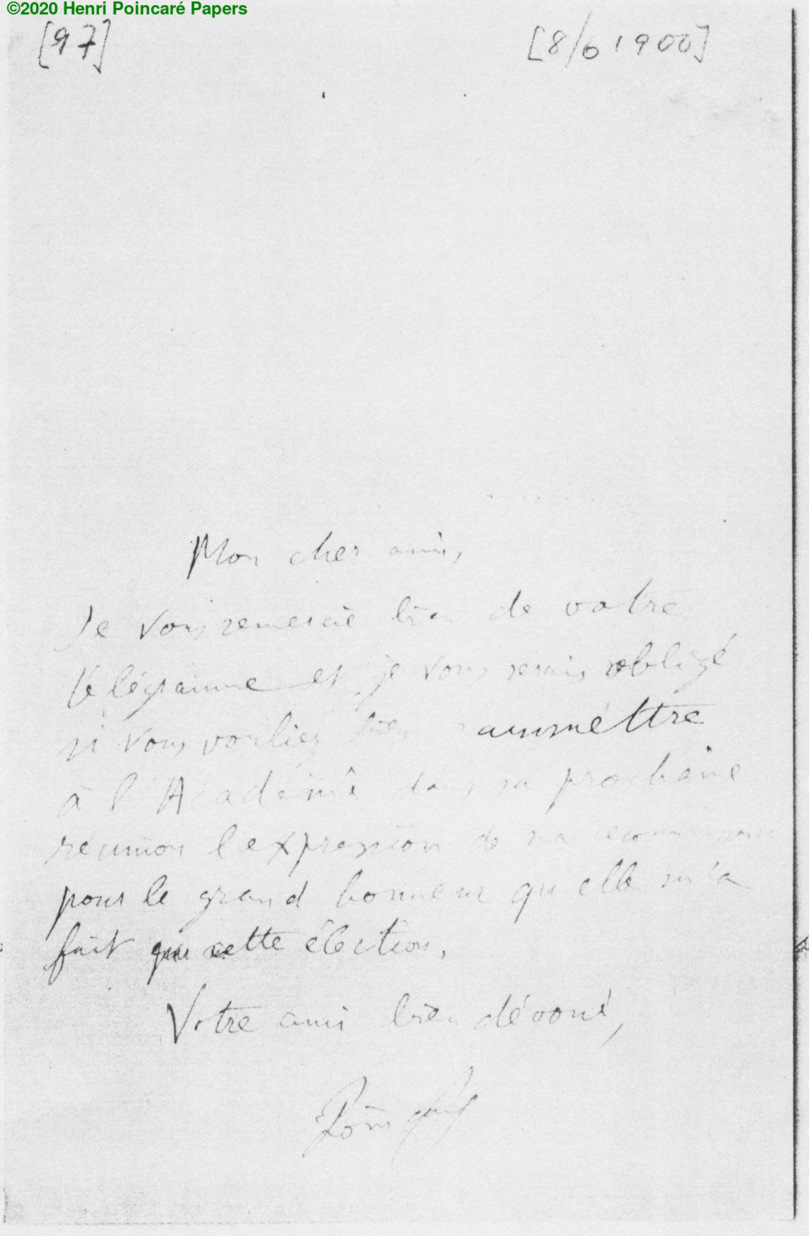 ©2020 Henri Poincaré Papers
[97]
[8/6 1900]
Mon cher ami,
Je vous remercie bien de votre
télégramme et je vous serais obligé
si vous vouliez bien transmettre
à l'Académie dans sa prochaine
réunion l'expression de ma reconnaissance
pour le grand honneur qu'elle m'a
fait par cette élection.
Votre ami bien dévoué,
Poincaré